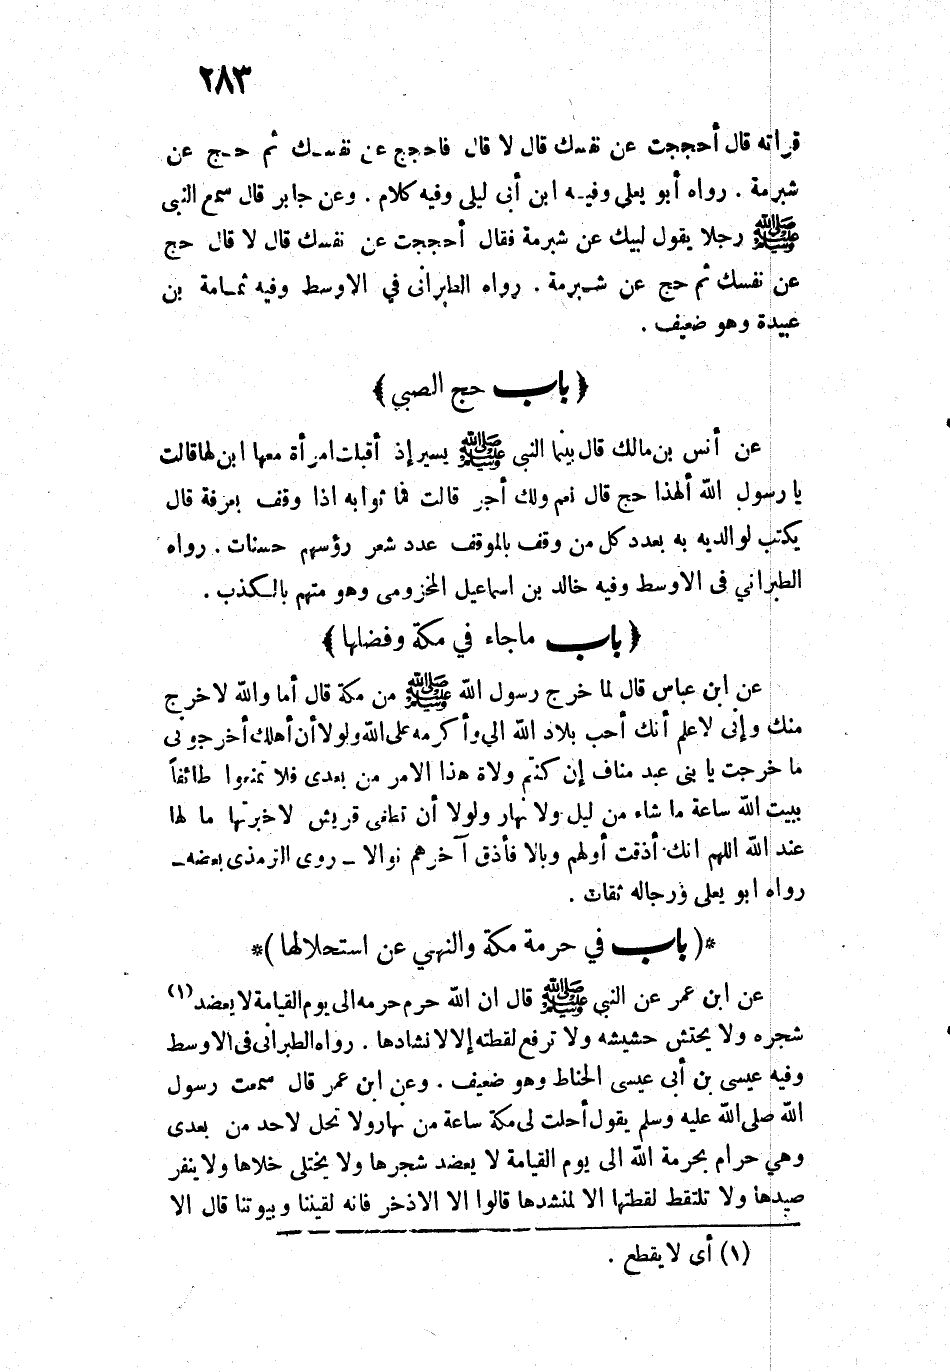 ٢٨٣
قراته قال أحججت عن نفسك قال لا قال فاحجج عن نفسك ثم حج عن
شبرمة . رواه أبو يعلى وفيه ابن أبى ليلى وفيه كلام . وعن جابر قال سمع النبى
ﷺ رجلا يقول لبيك عن شبرمة فقال أحججت عن نفسك قال لا قال حج
عن نفسك ثم حج عن شبرمة . رواه الطبرانى في الاوسط وفيه ثمامة بن
عبيدة وهو ضعيف .
﴿ باب حج الصبي ﴾
عن أنس بن مالك قال بينما النبى ﷺ يسير إذ أقبلت امرأة معها ابن لها قالت
يا رسول الله ألهذا حج قال نعم ولك أجر قالت فما ثوابه اذا وقف بعرفة قال
يكتب لوالديه به بعدد كل من وقف بالموقف عدد شعر رؤسهم حسنات . رواه
الطبراني فى الاوسط وفيه خالد بن اسماعيل المخزومى وهو متهم بالكذب .
﴿ باب ماجاء في مكة وفضلها ﴾
عن ابن عباس قال لما خرج رسول الله ﷺ من مكة قال أما والله لاخرج
منك وإنى لاعلم أنك أحب بلاد الله الي وأكرمه على الله ولولا أن أهلك أخرجونى
ما خرجت يا بنى عبد مناف إن كنتم ولاة هذا الامر من بعدى فلا تمنعوا طائفاً
ببيت الله ساعة ما شاء من ليل ولا نهار ولولا أن تطغى قريش لاخبرتها ما لها
عند الله اللهم انك أذقت أولهم وبالا فأذق آخرهم نوالا ــ روى الترمذى بعضه ــ
رواه ابو يعلى ورجاله ثقات .
*( باب في حرمة مكة والنهي عن استحلالها )*
عن ابن عمر عن النبي ﷺ قال ان الله حرم حرمه الى يوم القيامة لا يعضد (١)
شجره ولا يحتش حشيشه ولا ترفع لقطته إلا لانشادها . رواه الطبرانى فى الاوسط
وفيه عيسى بن أبى عيسى الحناط وهو ضعيف . وعن ابن عمر قال سمعت رسول
الله صلى الله عليه وسلم يقول أحلت لى مكة ساعة من نهار ولا تحل لاحد من بعدى
وهي حرام بحرمة الله الى يوم القيامة لا يعضد شجرها ولا يختلى خلاها ولا ينفر
صيدها ولا تلتقط لقطتها الا لمنشدها قالوا الا الاذخر فانه لقيننا وبيوتنا قال الا
(١) أى لا يقطع .